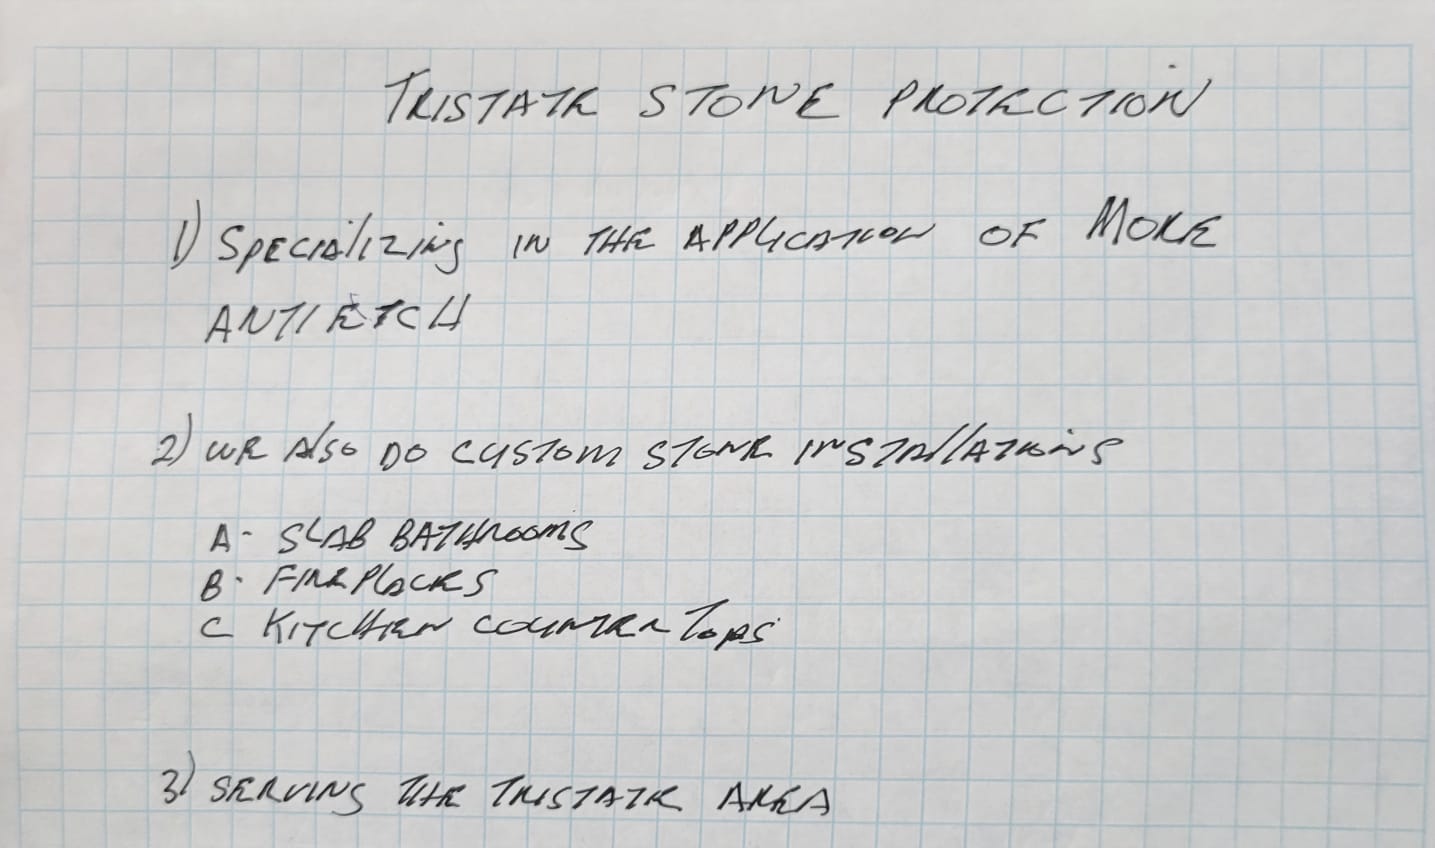 TRISTATE STONE PROTECTION
1) SPECIAlIZiNg IN THE APPLICATION OF MORE
ANTI ETCH
2) WE Also DO CUSTOM STONE INSTAllATIONS
A- SLAB BATHROOMS
B- FIREPlACES
C KITCHEN COUNTER TOPS
3) SERVING THE TRISTATE AREA